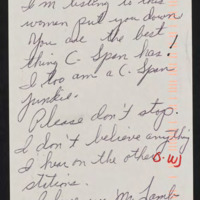 I'm listening to this
women put you down
You are the best
thing C. Span has!
I too am a C. Span
junkie.
Please don't stop.
I don't believe anything
I hear on the other
stations.
Mr. Lamb